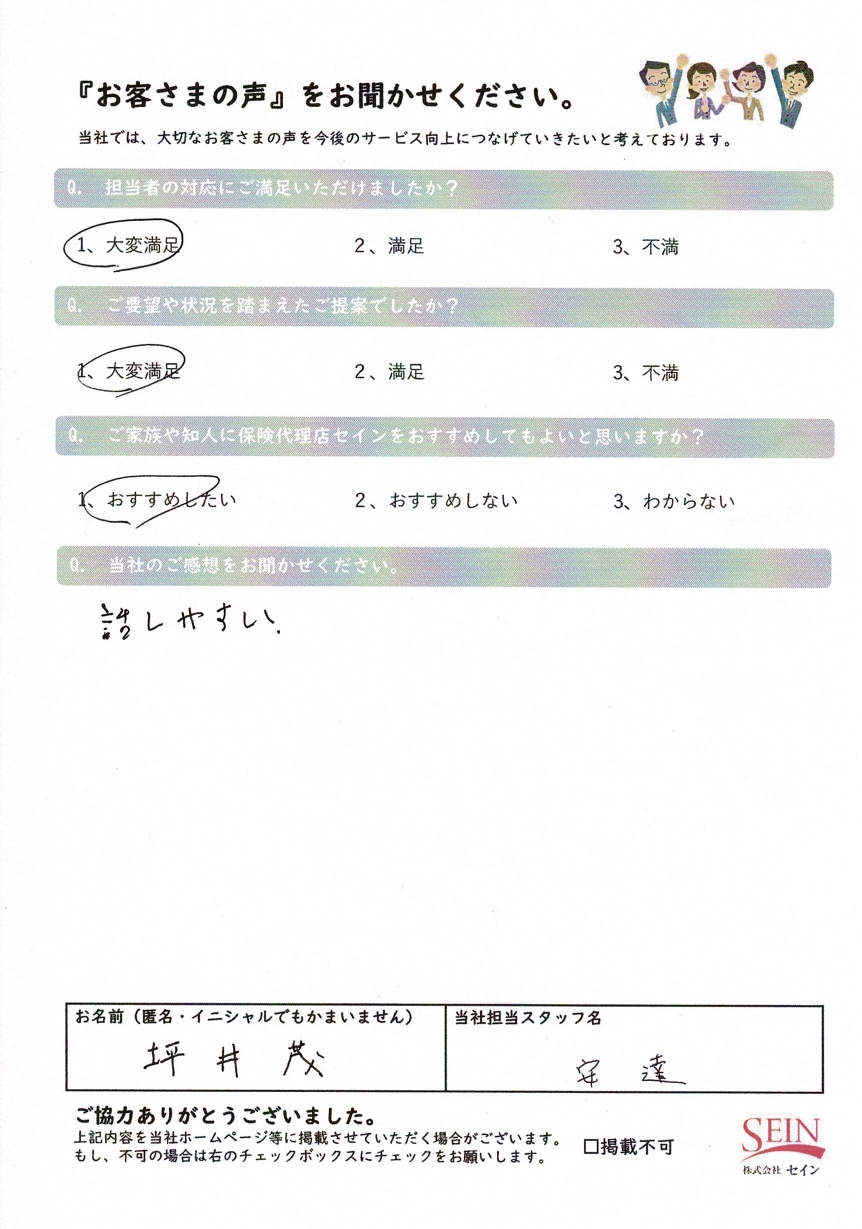 『お客さまの声』をお聞かせください。
当社では、大切なお客さまの声を今後のサービス向上につなげていきたいと考えております。
Q. 担当者の対応にご満足いただけましたか？
1、大変満足 2、満足 3、不満
Q. ご要望や状況を踏まえたご提案でしたか？
1、大変満足 2、満足 3、不満
Q. ご家族や知人に保険代理店セインをおすすめしてもよいと思いますか？
1、おすすめしたい 2、おすすめしない 3、わからない
Q. 当社のご感想をお聞かせください。
話しやすい.
お名前（匿名・イニシャルでもかまいません） 当社担当スタッフ名
坪井 茂 安達
ご協力ありがとうございました。
上記内容を当社ホームページ等に掲載させていただく場合がございます。
もし、不可の場合は右のチェックボックスにチェックをお願いします。
□掲載不可
SEIN
株式会社 セイン